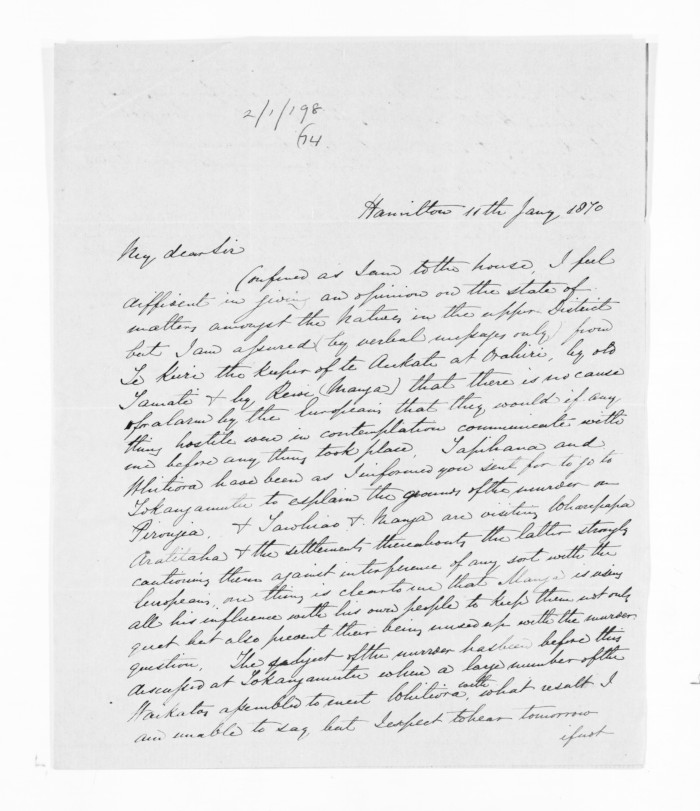 2/1/198
64
Hamilton 11th Jany 1870
My dear Sir
Confined as I am to the house, I feel
diffident in giving an opinion on the state of
matters amongst the Natives in the upper District
but I am assured (by verbal messages only) from
Te Kuri the keeper of te Aukati at Orahiri, by old
Tamati & by Rewi (Manga) that there is no cause
for alarm by the Europeans that they would if any
thing hostile were in contemplation communicate with
me before any thing took place. Tapihana and
Whitiora have been as I informed you sent for to go to
Tokangamutu to explain the grounds of the murder on
Pirongia. & Tawhiao & Manga are visiting Wharepapa
Aratitaha & the settlements thereabouts the latter strongly
cautioning them against interference of any sort with the
Europeans, one thing is clear to me that Manga is using
all his influence with his own people to keep them not only
quiet but also prevent their being mixed up with the murder
question. The subject of the murder has been before this
discussed at Tokangamutu when a large number of the
Waikatos assembled to meet Whitiora, with what result I
am unable to say, but I expect to hear tomorrow
if not